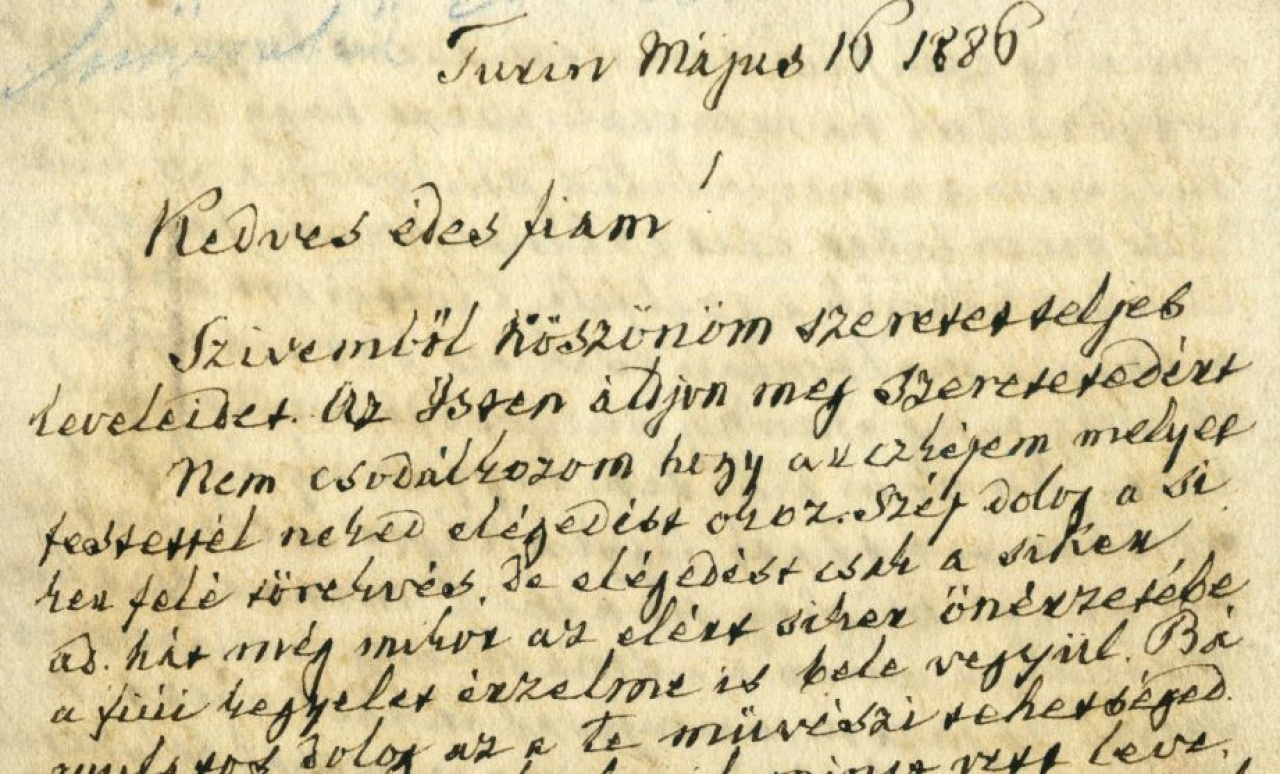 Turin Május 16 1886
Kedves édes fiam!
Szivemből köszönöm szeretetteljes
leveleidet. Az Isten áldjon meg szeretetedért
Nem csodálkozom hogy az arczképem melyet
festettél neked elégedést okoz. Szép dolog a si
ker felé törekvés, de elégedést csak a siker
ad. hát még mikor az elért siker önérzetébe
a fiúi kegyelet érzelme is bele vegyül. Bá
mulatos dolog az a te művészi tehetséged.
mint vett leve